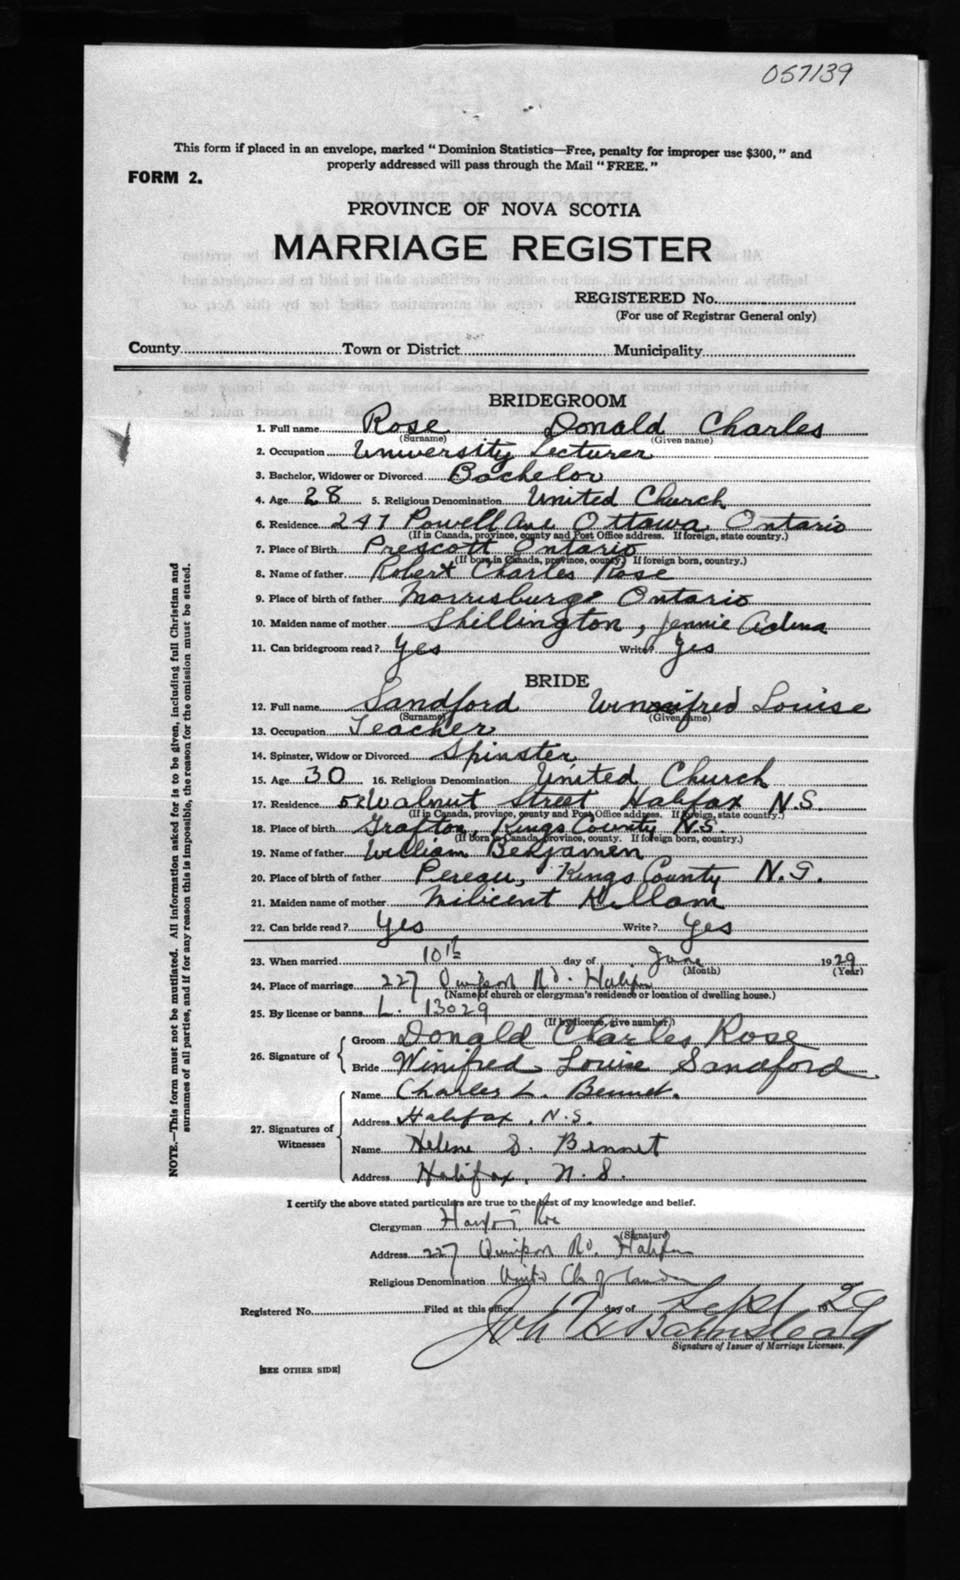 057139
This form if placed in an envelope, marked "Dominion Statistics—Free, penalty for improper use $300," and
properly addressed will pass through the Mail "FREE."
FORM 2.
PROVINCE OF NOVA SCOTIA
MARRIAGE REGISTER
REGISTERED No.
(For use of Registrar General only)
County Town or District Municipality
BRIDEGROOM
1. Full name Rose Donald Charles
(Surname) (Given name)
2. Occupation University Lecturer
3. Bachelor, Widower or Divorced Bachelor
4. Age 28 5. Religious Denomination United Church
6. Residence 247 Powell Ave Ottawa Ontario
(If in Canada, province, county and Post Office address. If foreign, state country.)
7. Place of Birth Prescott Ontario
(If born in Canada, province, county. If foreign born, country.)
8. Name of father Robert Charles Rose
9. Place of birth of father Morrisburg Ontario
10. Maiden name of mother Shillington, Jennie Adena
11. Can bridegroom read? Yes Write? Yes
BRIDE
12. Full name Sandford Winnifred Louise
(Surname) (Given name)
13. Occupation Teacher
14. Spinster, Widow or Divorced Spinster
15. Age 30 16. Religious Denomination United Church
17. Residence 52 Walnut Street Halifax N.S.
(If in Canada, province, county and Post Office address. If foreign, state country.)
18. Place of birth Grafton, Kings County N.S.
(If born in Canada, province, county. If foreign born, country.)
19. Name of father William Benjamen
20. Place of birth of father Pereau, Kings County N.S.
21. Maiden name of mother Milicent Killam
22. Can bride read? Yes Write? Yes
23. When married 10th day of June 1929
(Month) (Year)
24. Place of marriage 227 Quinpool Rd. Halifax
(Name of church or clergyman's residence or location of dwelling house.)
25. By license or banns L. 13029
(If by license, give number)
26. Signature of Groom Donald Charles Rose
Bride Winifred Louise Sandford
27. Signatures of Witnesses Name Charles L. Bennet.
Address Halifax, N.S.
Name Helene S. Bennet
Address Halifax, N.S.
I certify the above stated particulars are true to the best of my knowledge and belief.
Clergyman
(Signature)
Address 227 Quinpool Rd. Halifax
Religious Denomination United Ch of Canada
Registered No. Filed at this office 17 day of Sept 1929
Signature of Issuer of Marriage Licenses.
[SEE OTHER SIDE]
NOTE.—This form must not be mutilated. All information asked for is to be given, including full Christian and
surnames of all parties, and if for any reason this is impossible, the reason for the omission must be stated.